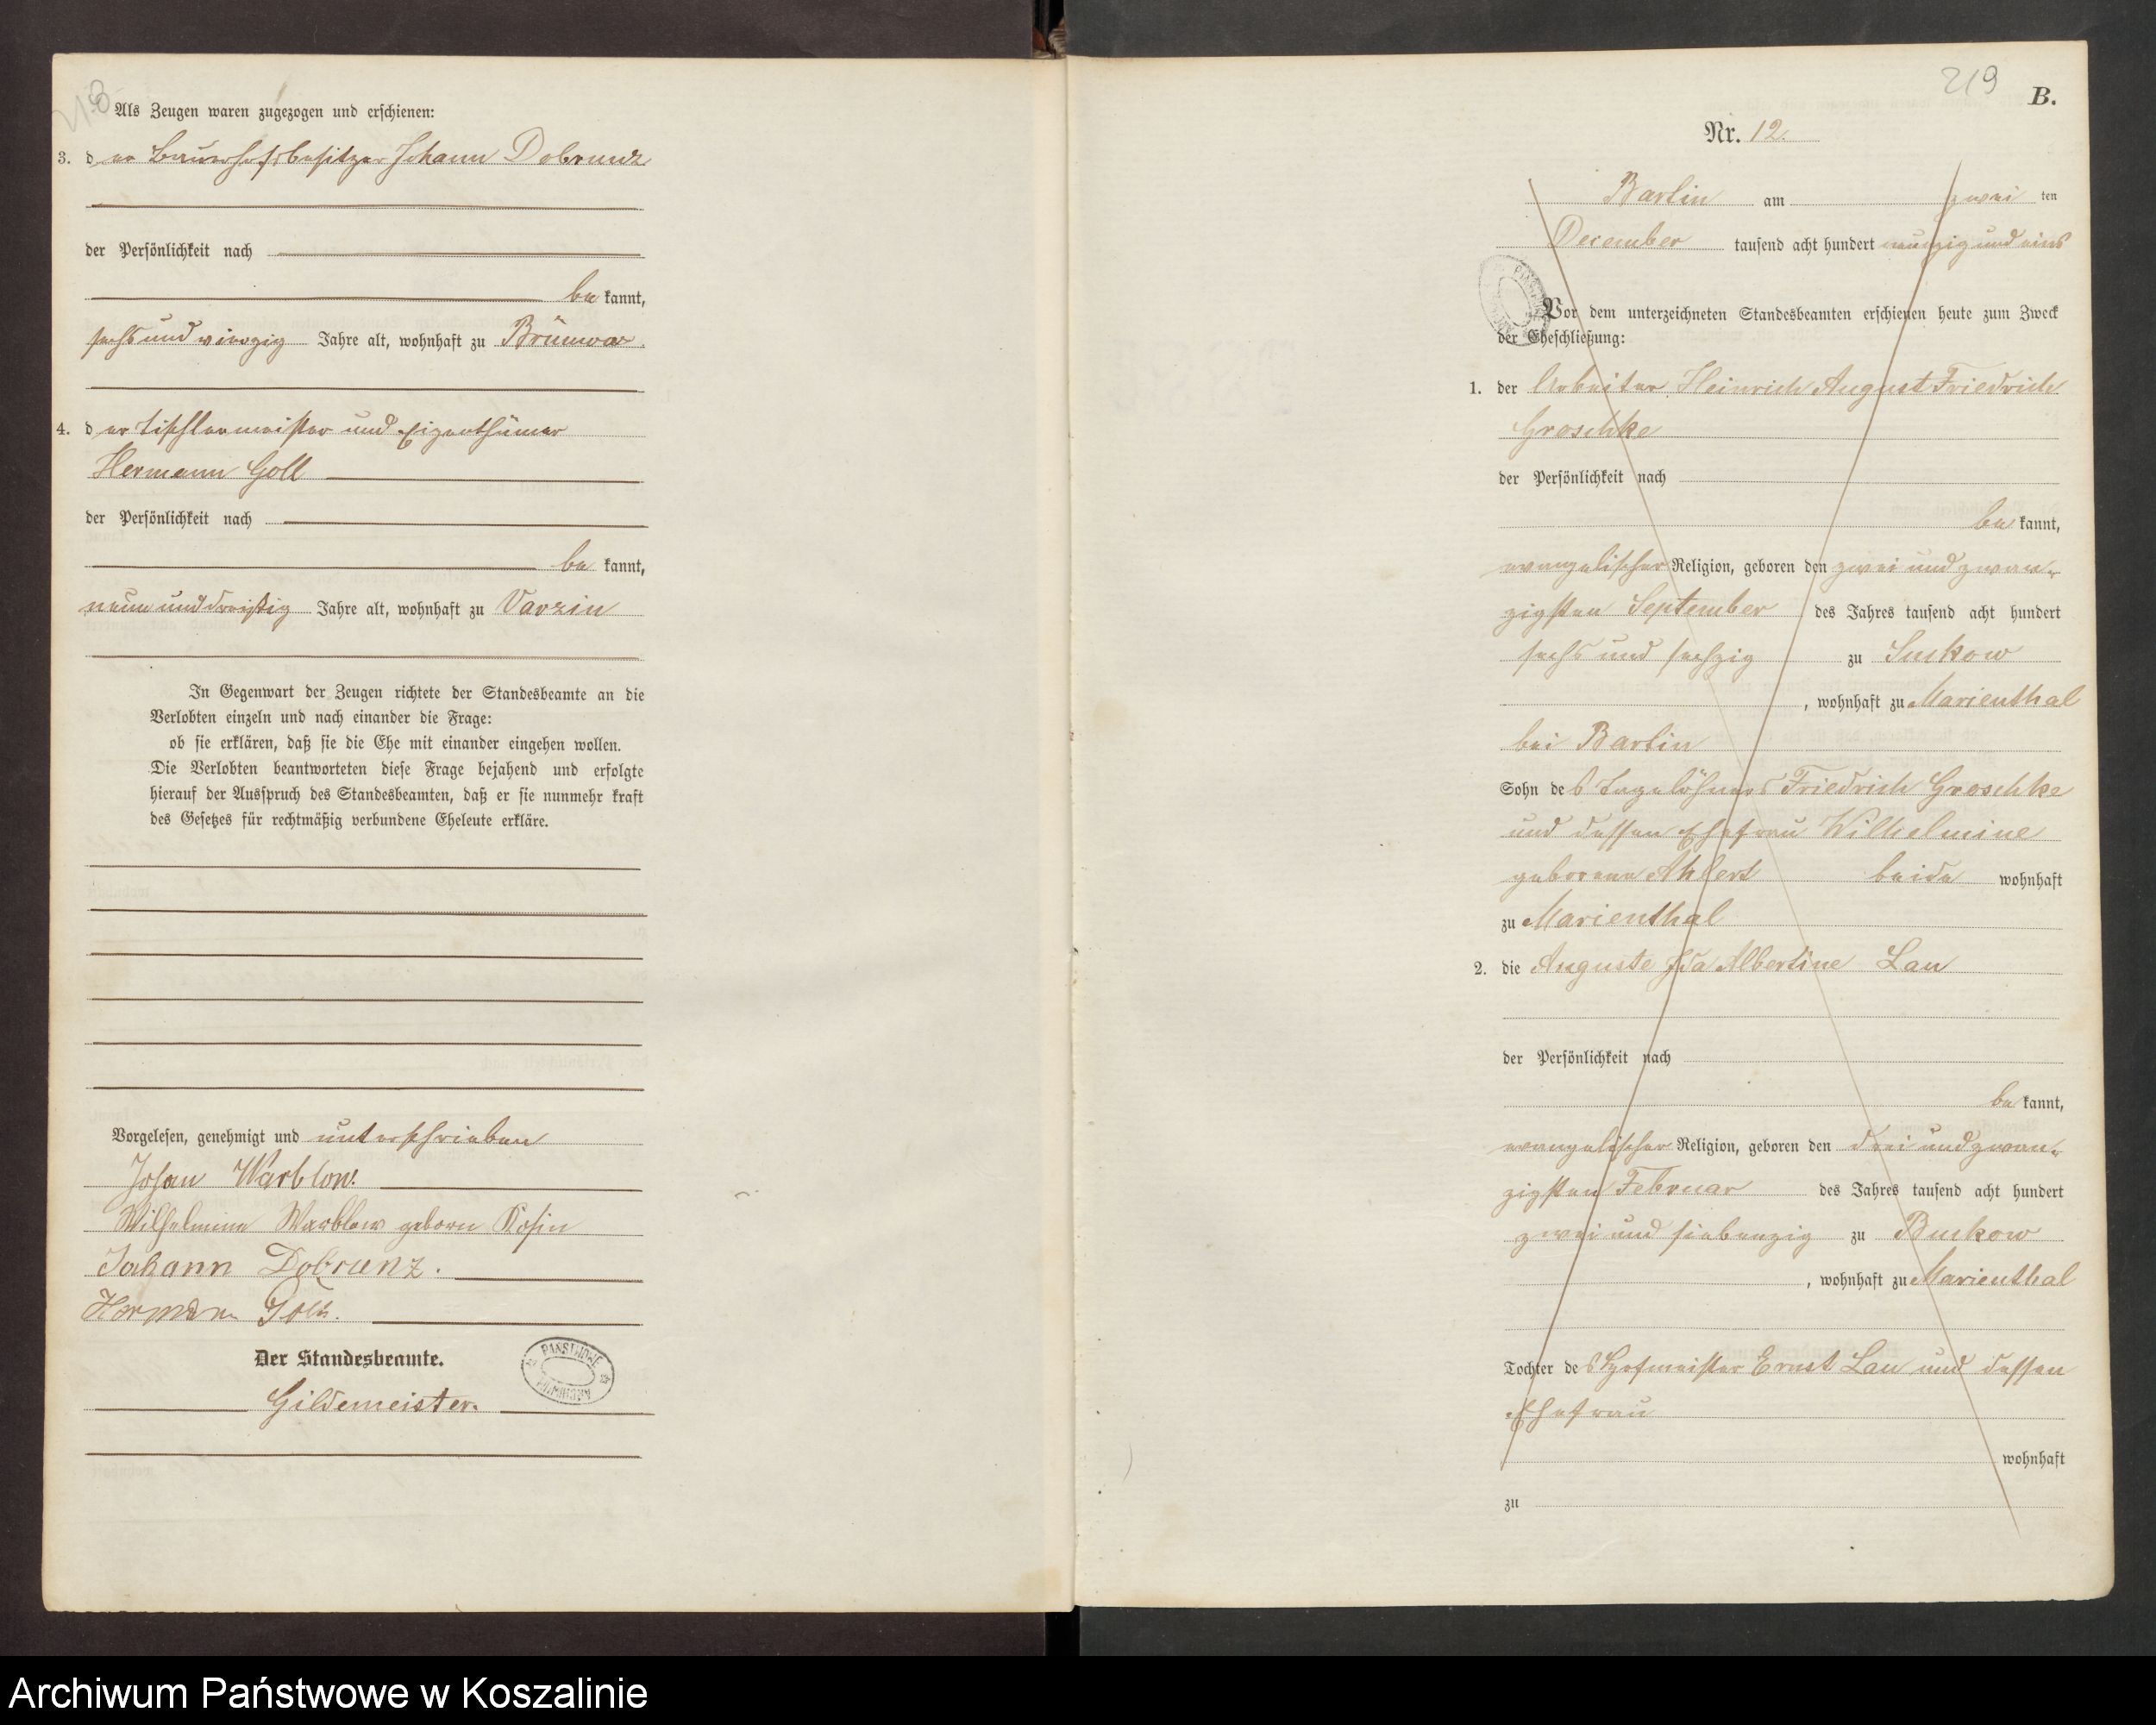 218
Als Zeugen waren zugezogen und erschienen:
3. der Bauerhofsbesitzer Johann Dobrunz
der Persönlichkeit nach
be kannt,
sechs und vierzig Jahre alt, wohnhaft zu Brünnow
4. der Tischlermeister und Eigenthümer
Hermann Goll
der Persönlichkeit nach
be kannt,
neun und dreißig Jahre alt, wohnhaft zu Varzin
In Gegenwart der Zeugen richtete der Standesbeamte an die
Verlobten einzeln und nach einander die Frage:
ob sie erklären, daß sie die Ehe mit einander eingehen wollen.
Die Verlobten beantworteten diese Frage bejahend und erfolgte
hierauf der Ausspruch des Standesbeamten, daß er sie nunmehr kraft
des Gesetzes für rechtmäßig verbundene Eheleute erkläre.
Vorgelesen, genehmigt und unterschrieben
Johan Warblow.
Wilhelmine Warblow geborn Kosin
Johann Dobrunz.
Herman Goll.
Der Standesbeamte.
Gildemeister.
219
B.
Nr. 12.
Bartin am zwei ten
December tausend acht hundert neunzig und eins
Vor dem unterzeichneten Standesbeamten erschienen heute zum Zweck
der Eheschließung:
1. der Arbeiter Heinrich August Friedrich
Groschke
der Persönlichkeit nach
be kannt,
evangelischer Religion, geboren den zwei und zwan-
zigsten September des Jahres tausend acht hundert
sechs und sechzig zu Suckow
, wohnhaft zu Marienthal
bei Bartin
Sohn des Tagelöhners Friedrich Groschke
und dessen Ehefrau Wilhelmine
geborene Ahlert beide wohnhaft
zu Marienthal
2. die Auguste Ida Albertine Lau
der Persönlichkeit nach
be kannt,
evangelischer Religion, geboren den drei und zwan-
zigsten Februar des Jahres tausend acht hundert
zwei und siebenzig zu Buckow
, wohnhaft zu Marienthal
Tochter des Hofmeister Ernst Lau und dessen
Ehefrau
wohnhaft
zu
Archiwum Państwowe w Koszalinie